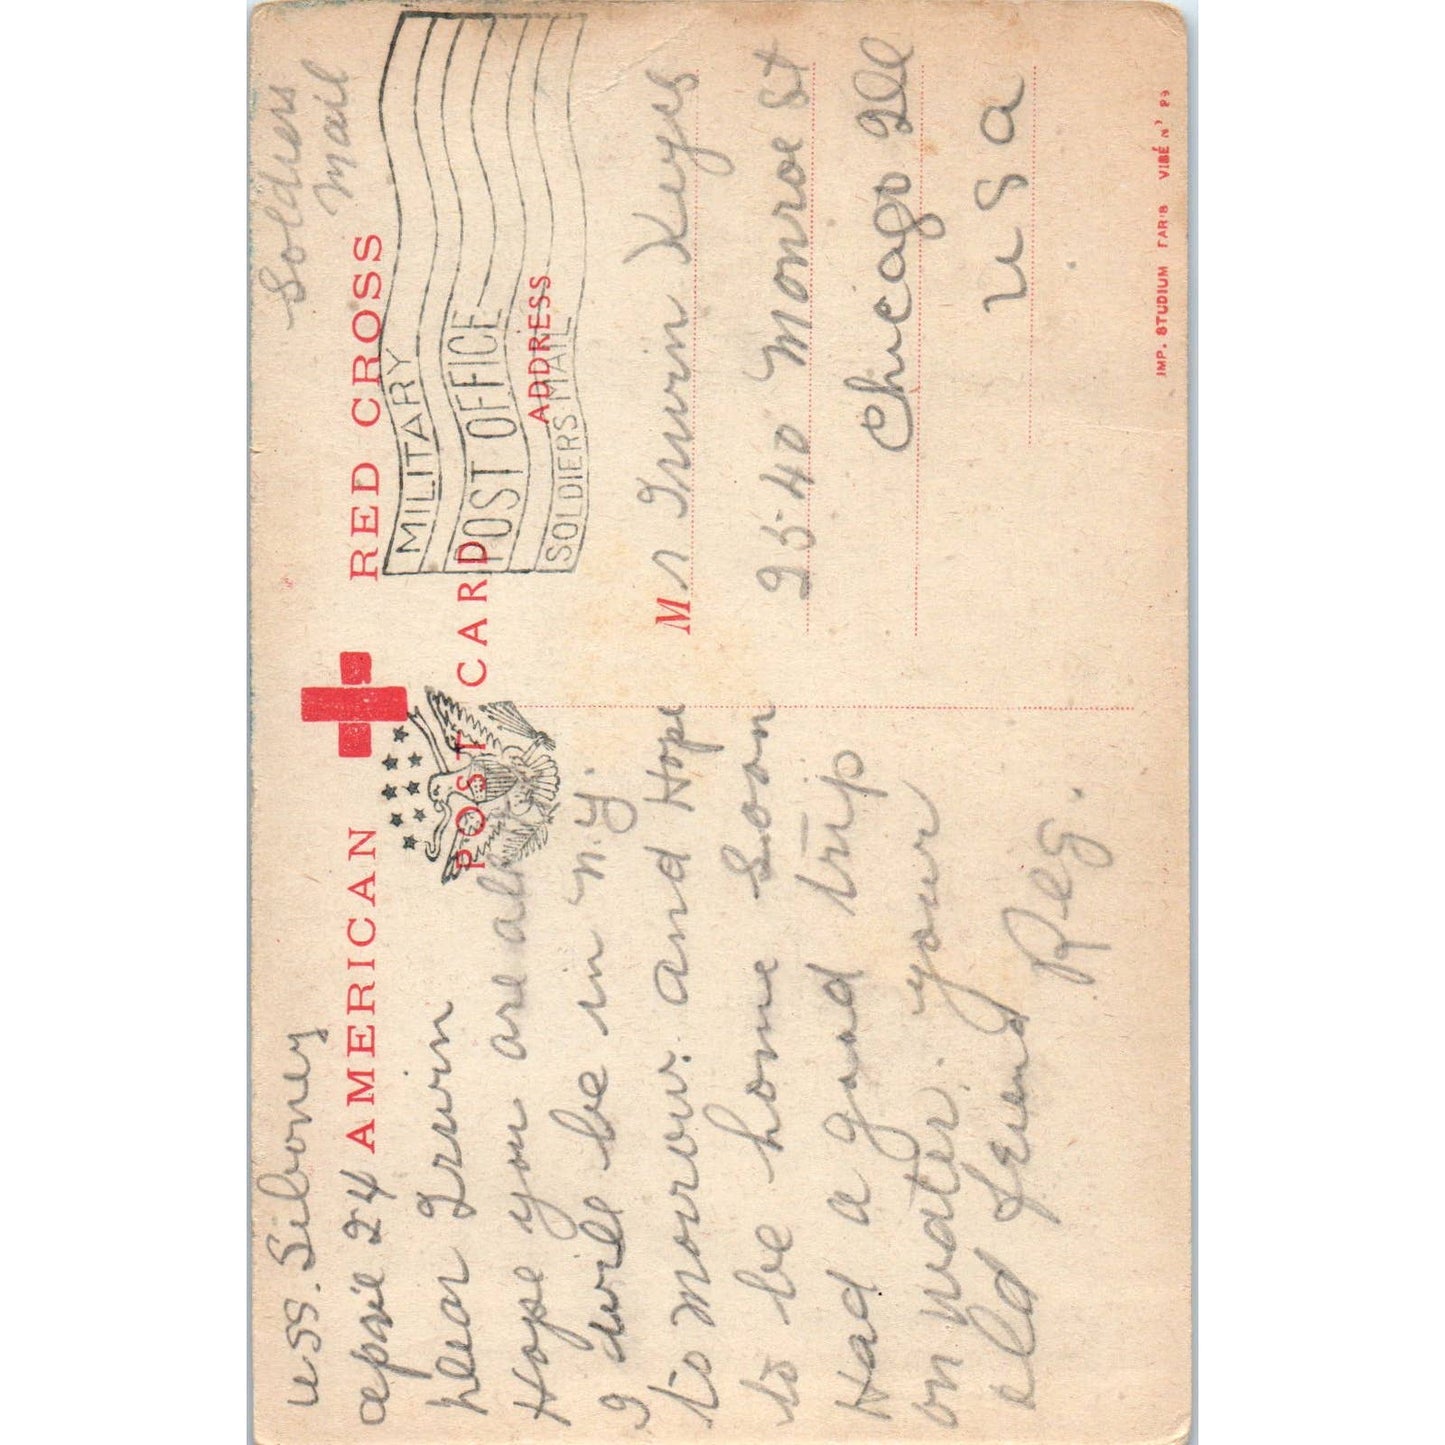 USS. Siboney
april 24
Dear Irwin
Hope you are all
I will be in N.Y.
to morrow. and Hope
to be home Soon
Had a good trip
on water. your
old friend
Reg.
AMERICAN RED CROSS
POST CARD
Soldiers
Mail
MILITARY
POST OFFICE
SOLDIERS MAIL
ADDRESS
Mr Irwin Keys
2540 Monroe St
Chicago Ill
U S a
IMP. STUDIUM PARIS VISÉ Nº 89